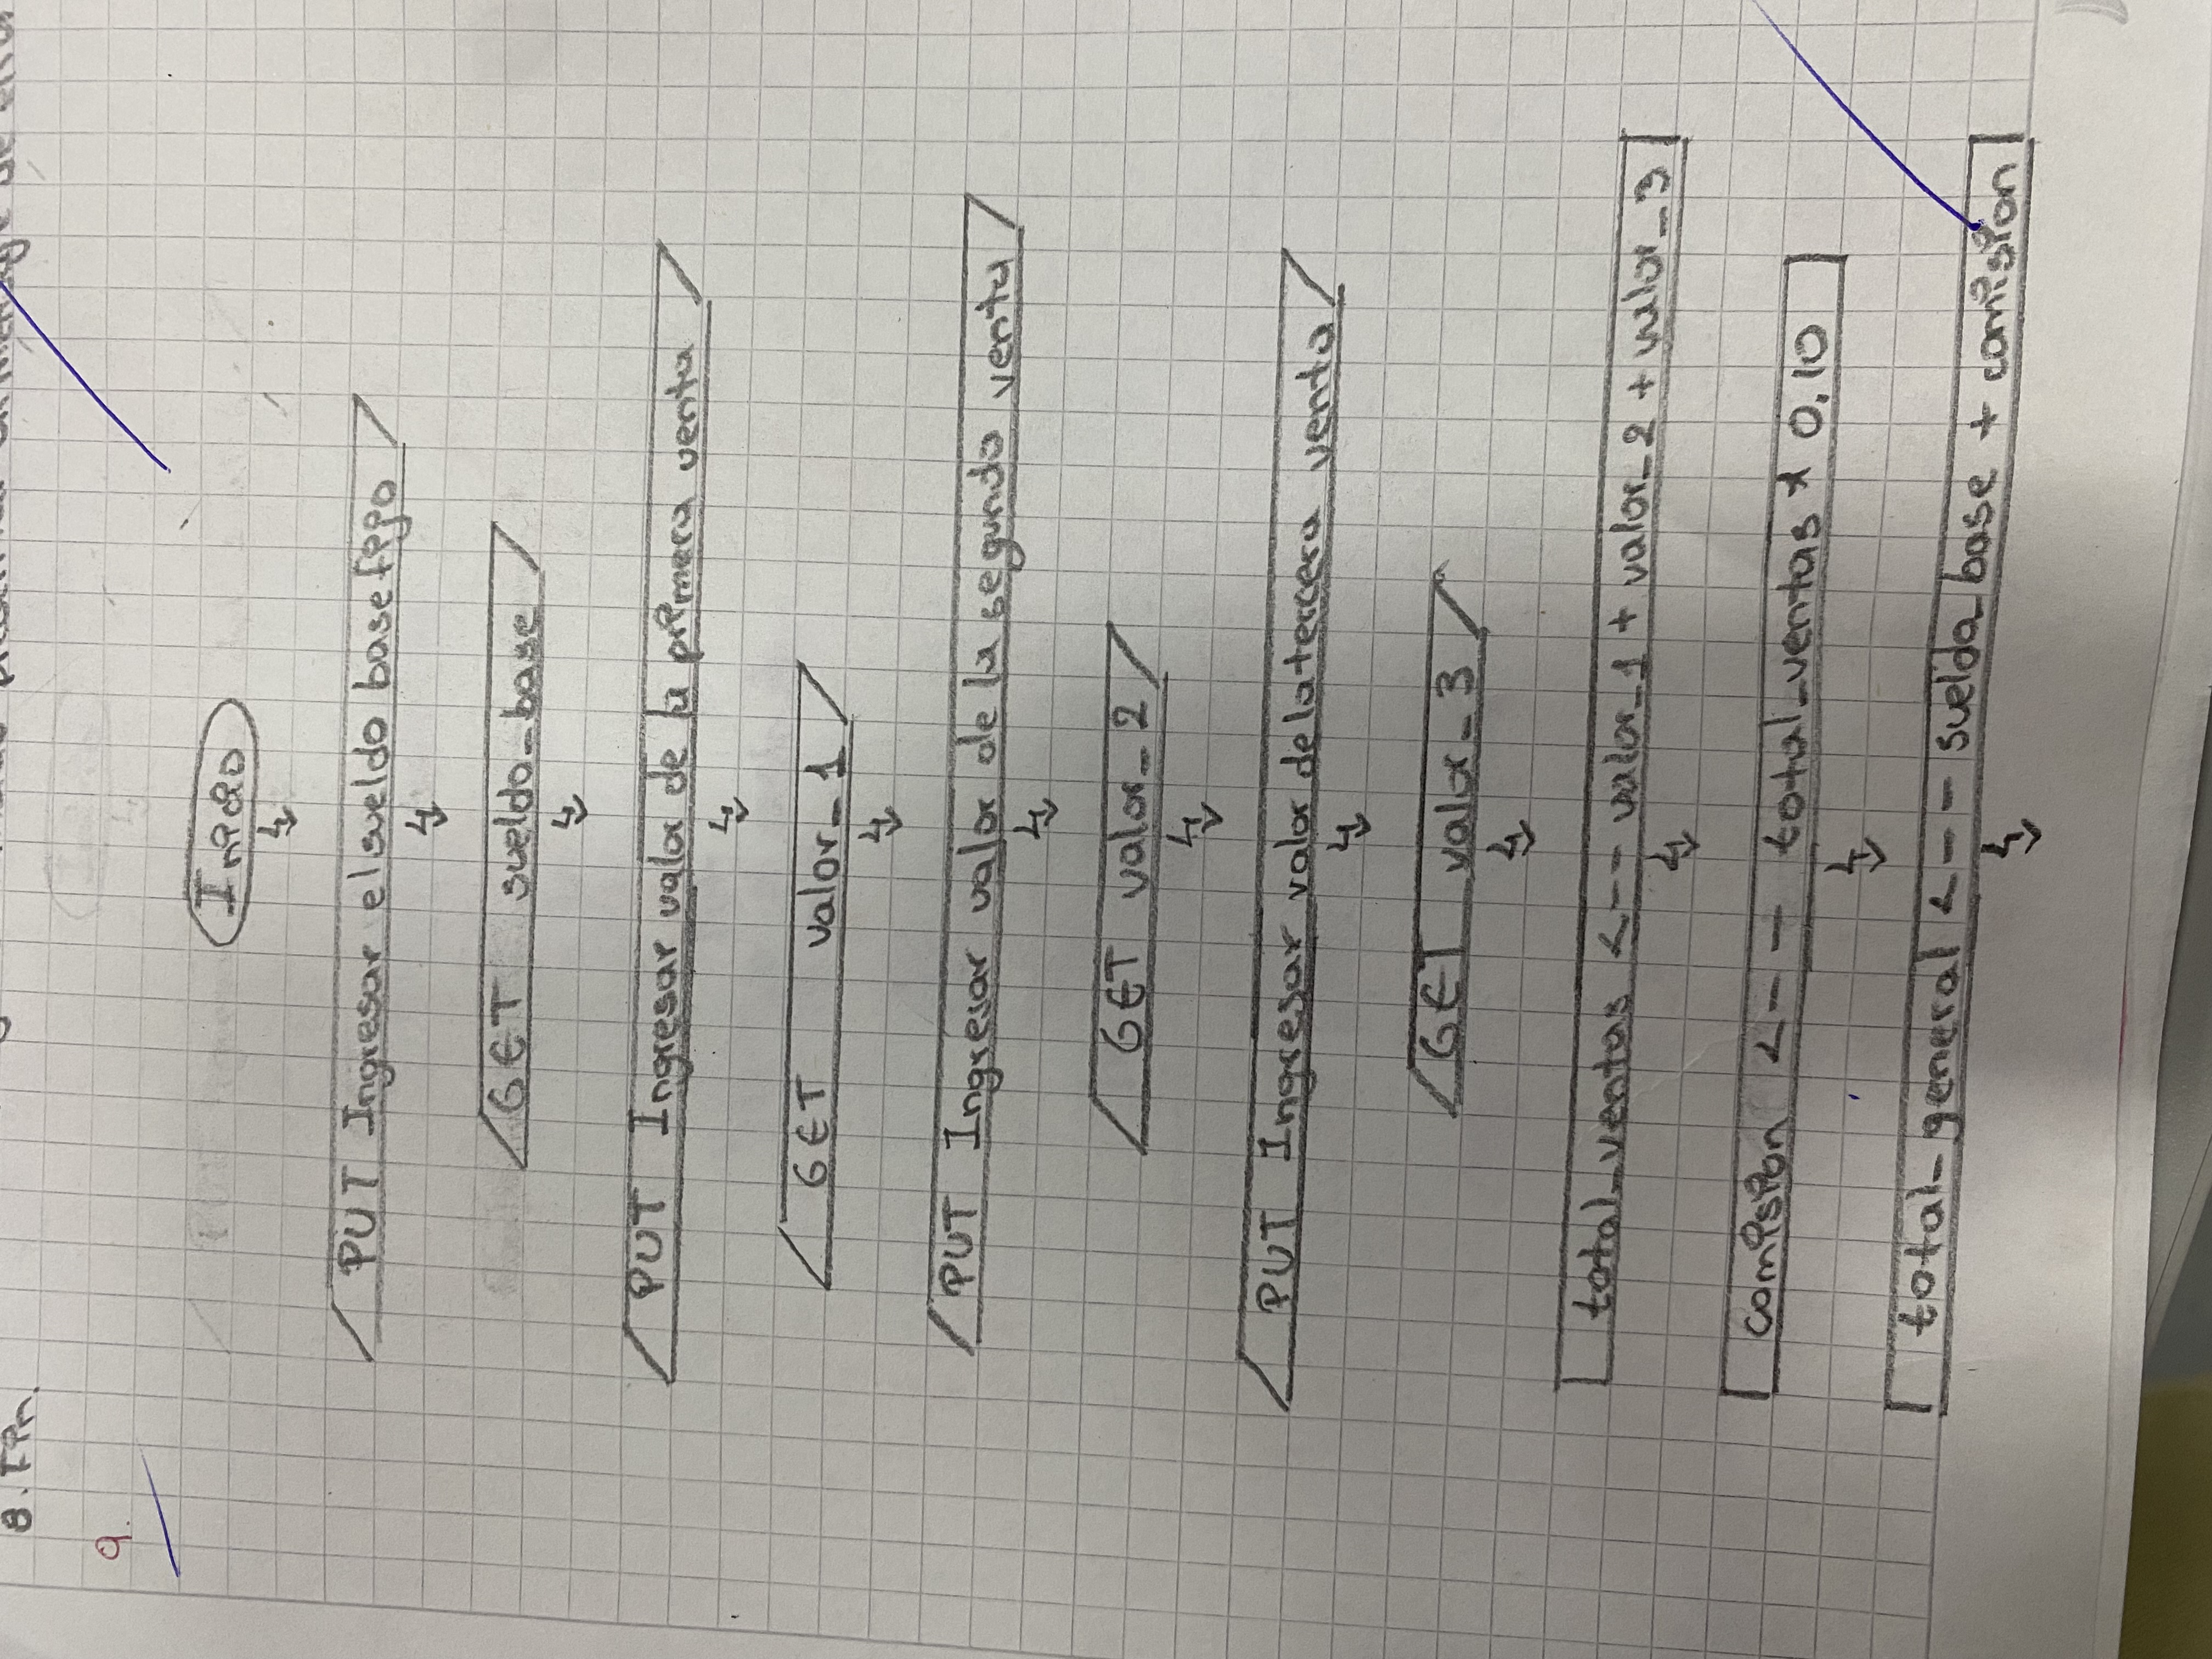 mensaje de error
8. Fin.
9.
Inicio
PUT Ingresar el sueldo base fijo
GET sueldo_base
PUT Ingresar valor de la primera venta
GET valor_1
PUT Ingresar valor de la segunda venta
GET valor_2
PUT Ingresar valor de la tercera venta
GET valor_3
total_ventas <-- valor_1 + valor_2 + valor_3
comision <-- total_ventas * 0.10
total_general <-- sueldo_base + comision